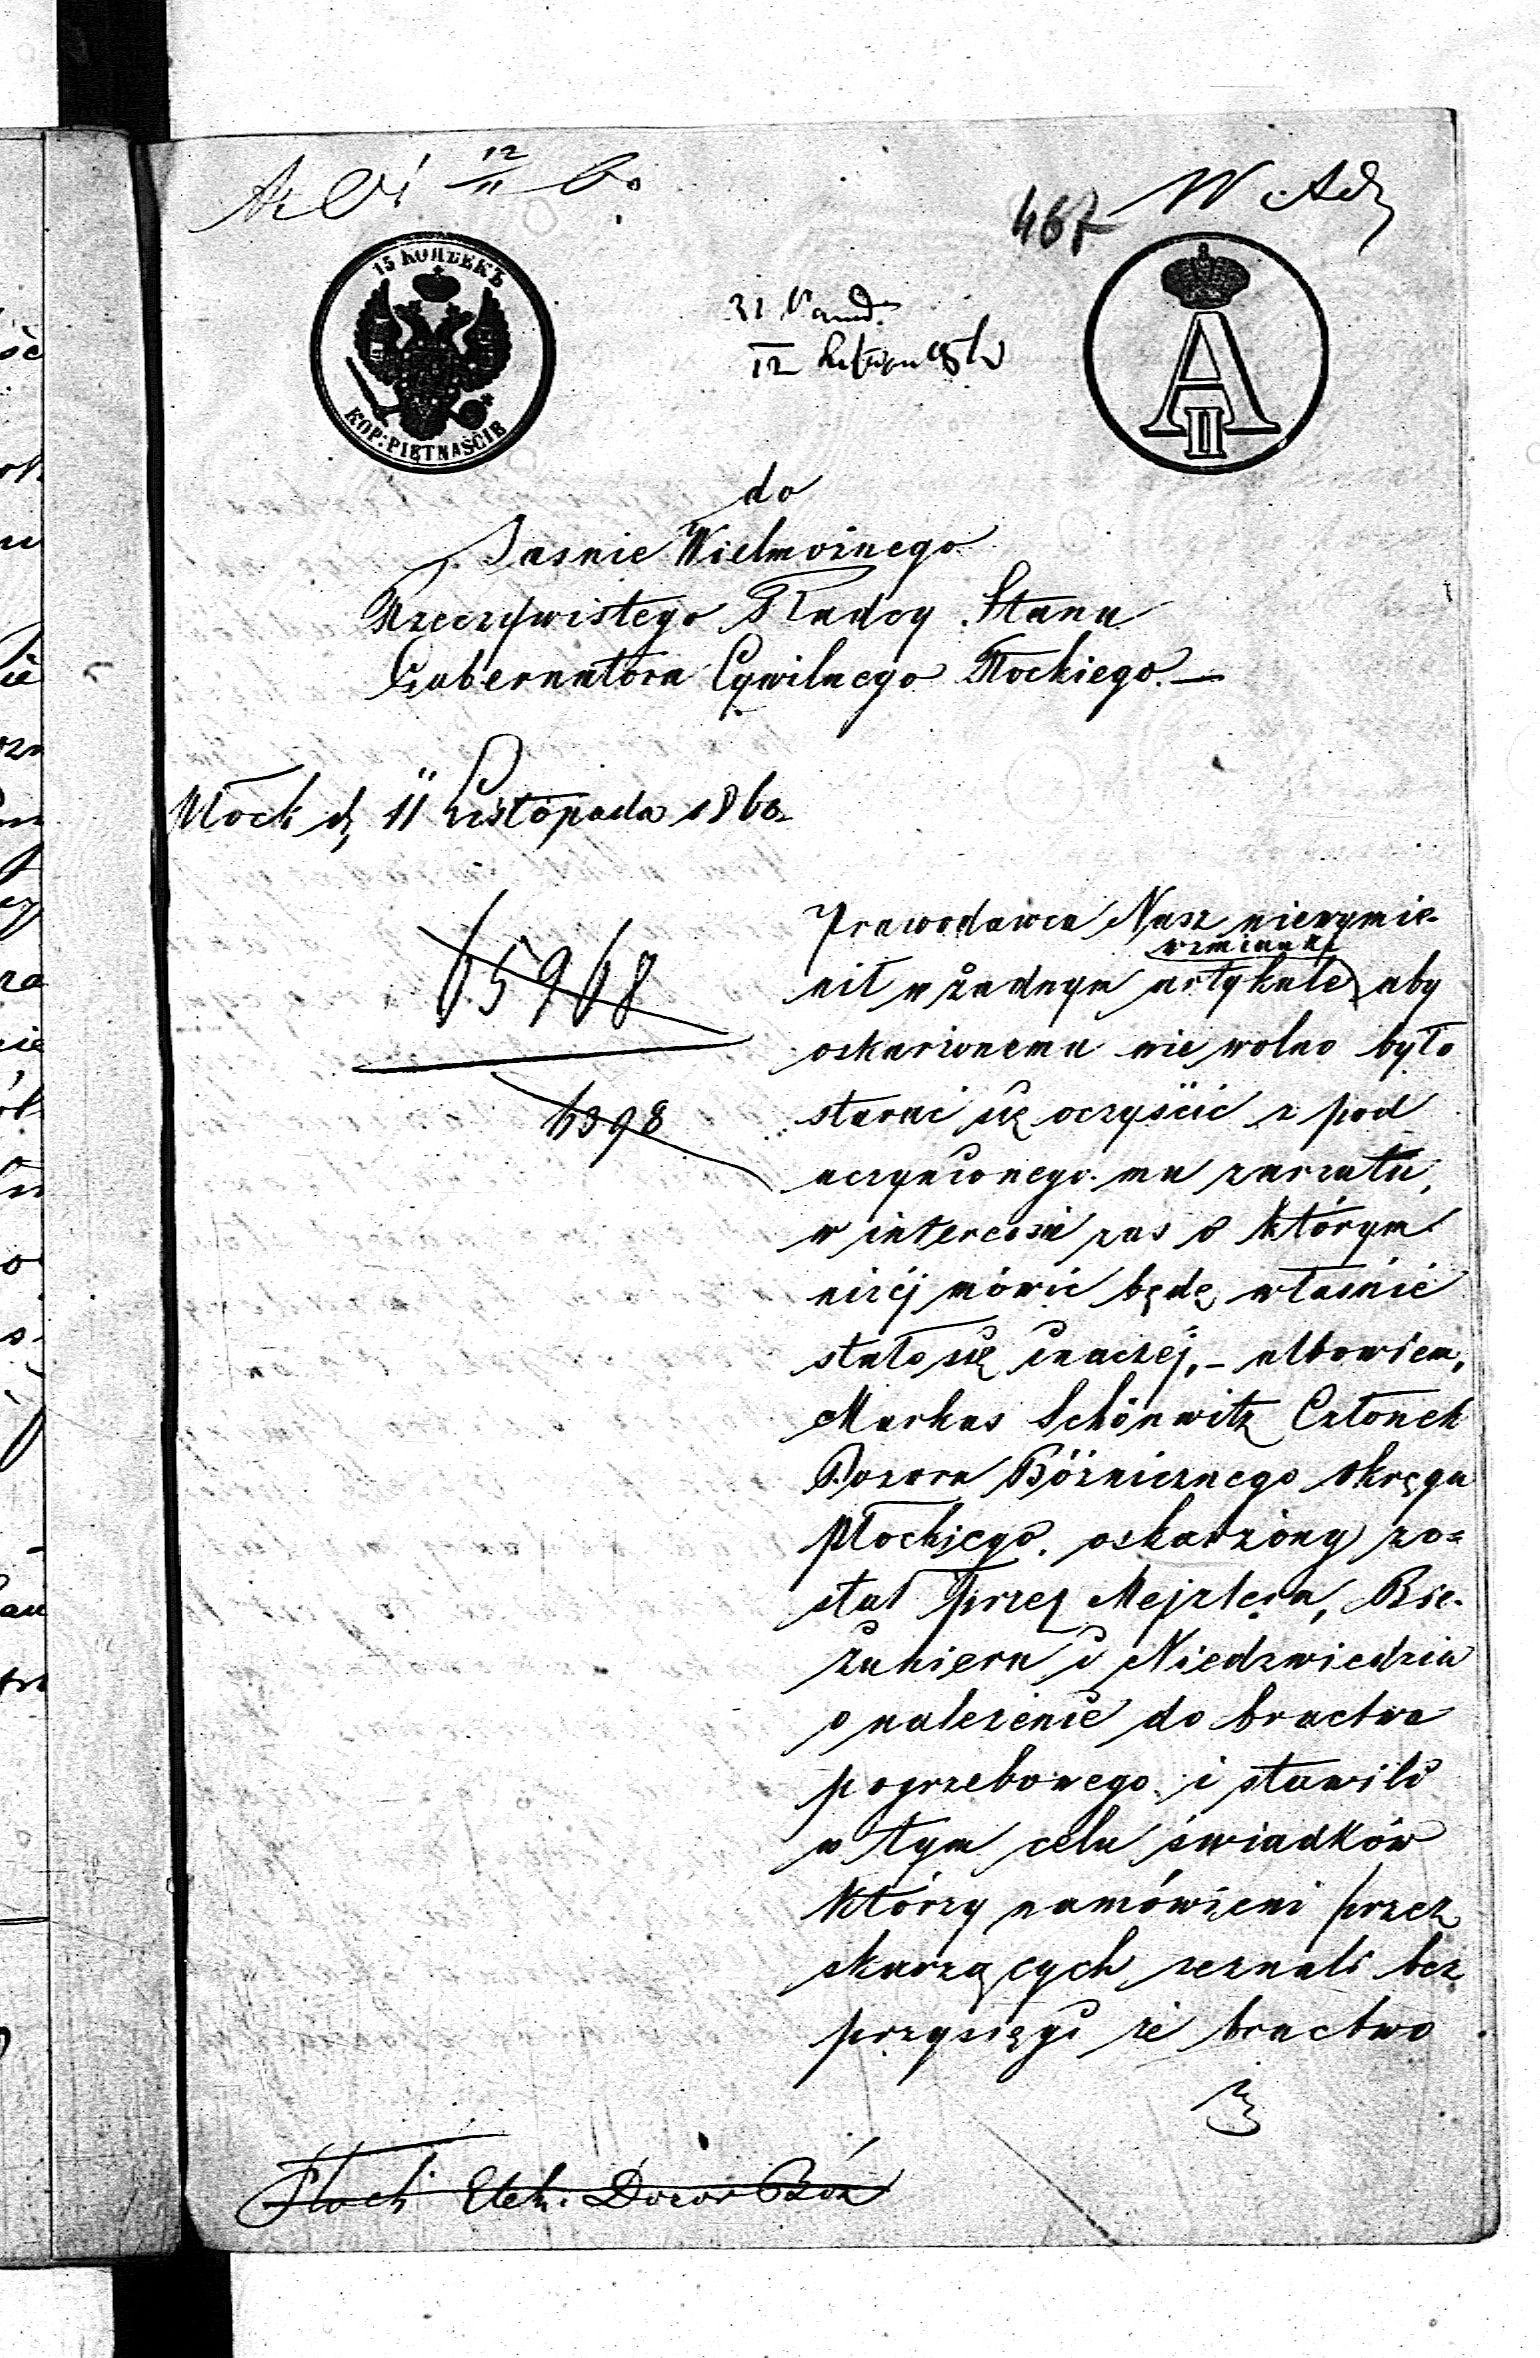 467
15 КОПѢЕКЪ
KOP: PIĘTNAŚCIE
A II
do
Jasnie Wielmożnego
Rzeczywistego Radcy Stanu
Gubernatora Cywilnego Płockiego. —
Płock d. 11 Listopada 1860
65968
6398
Prawodawca Nasz niewymie-
wzmianki
nił w żadnym artykule aby
oskarżonemu nie wolno było
starać się oczyścić z pod
uczynionego mu zarzutu,
w interesie zas o którym
niżéj mówić będę właśnie
stało się inaczéj, – albowiem,
Markus Schönwitz Członek
Dozoru Bóżnicznego Okręgu
Płockiego oskarżony zo=
stał przez Mejzlera, Bie-
żuniera i Niedzwiedzia
o należenie do bractwa
pogrzebowego i stawili
w tym celu świadków
którzy namówieni przez
skarzących zeznali bez
przysięgi że bractwo
Płock Dozor Boż